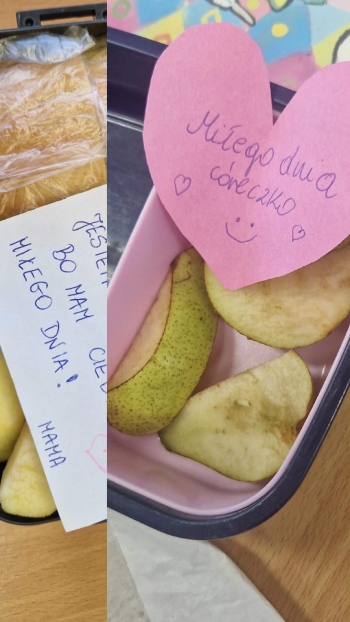 JESTEM
BO MAM CIEB
MIŁEGO DNIA!
MAMA
Miłego dnia
córeczko